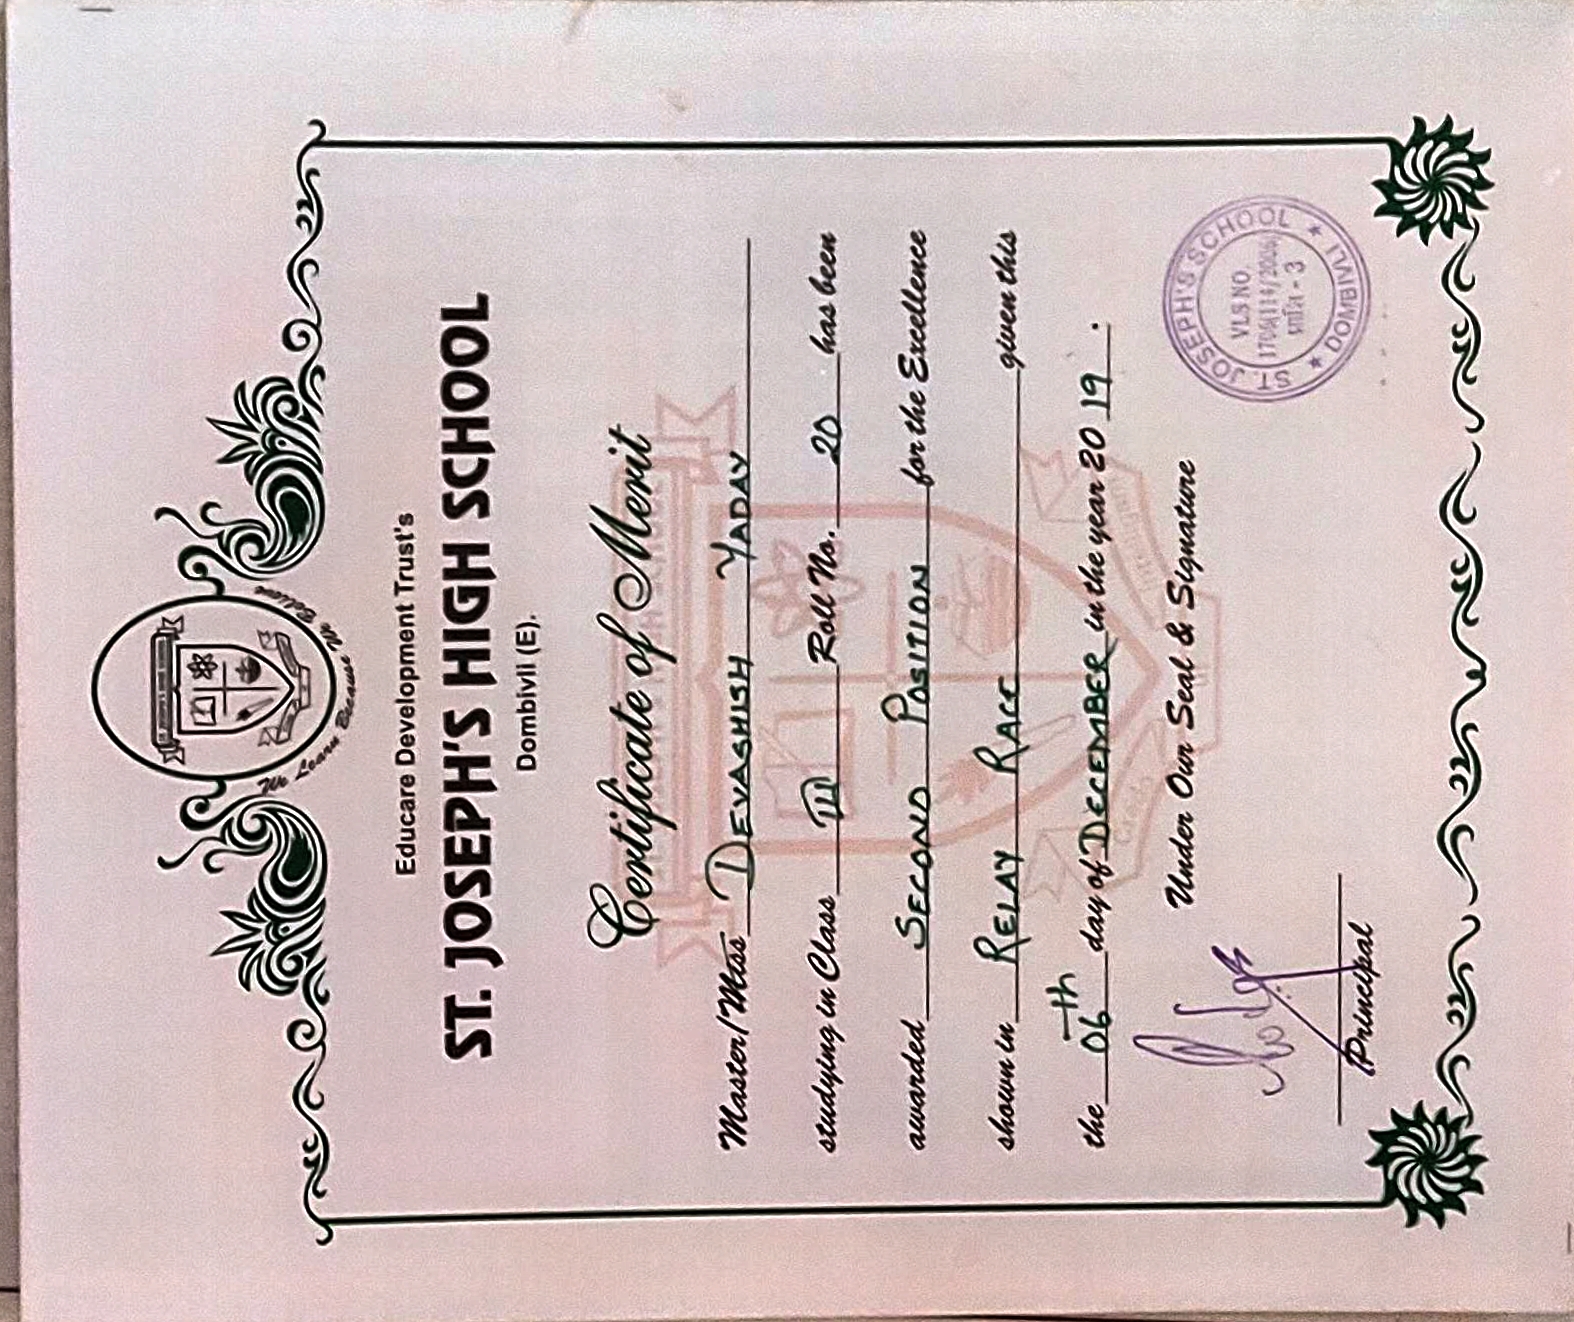 ST. JOSEPH'S HIGH SCHOOL
We Learn Because We Believe
Educare Development Trust's
ST. JOSEPH'S HIGH SCHOOL
Dombivli (E).
Certificate of Merit
Master/Miss DEVASHISH YADAV
studying in Class III Roll No. 20 has been
awarded SECOND POSITION for the Excellence
shown in RELAY RACE given this
the 06th day of DECEMBER in the year 2019.
Under Our Seal & Signature
Principal
ST. JOSEPH'S SCHOOL
VLS NO.
1706(114/2006)
- 3
DOMBIVLI